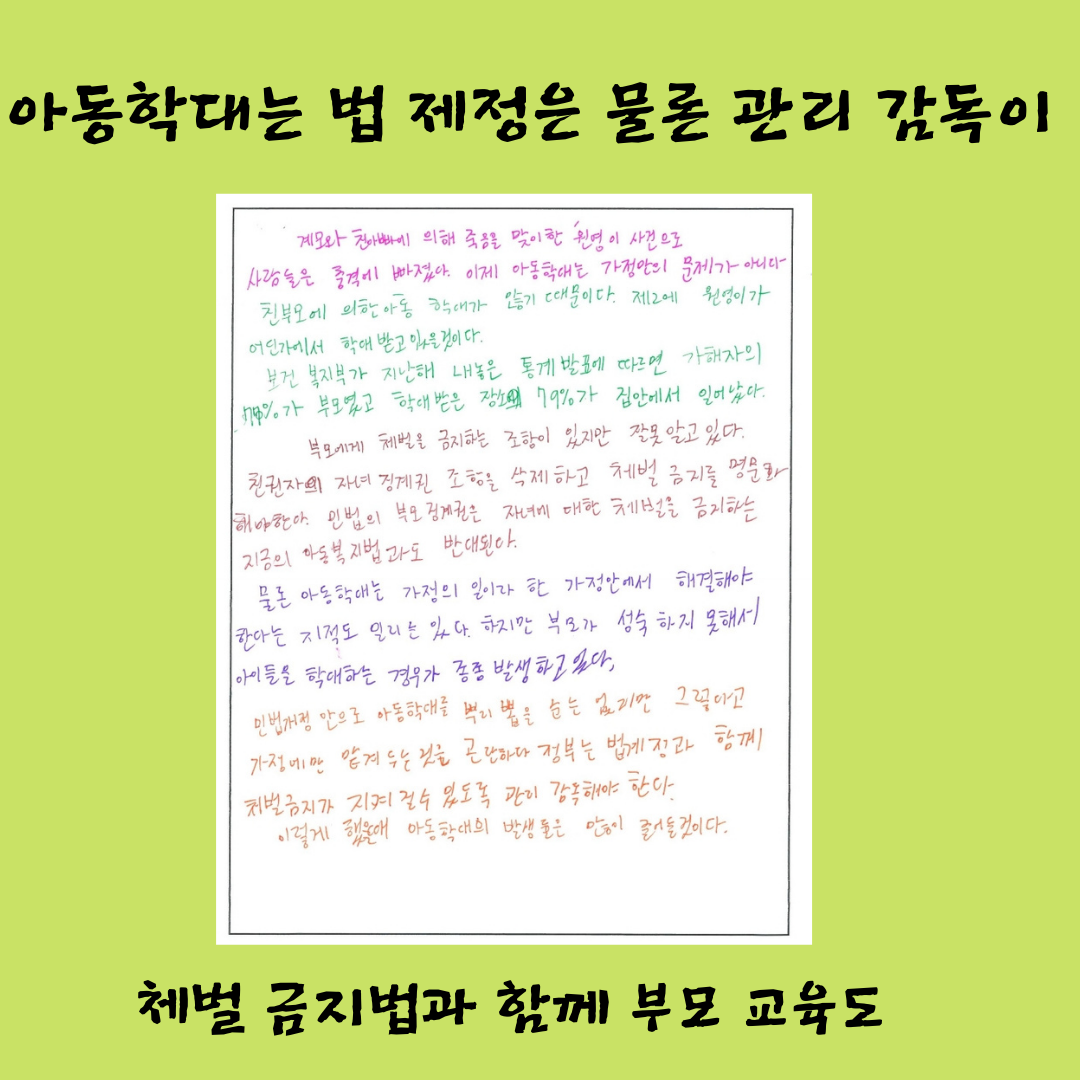 아동학대는 법 제정은 물론 관리 감독이
계모와 친아빠에 의해 죽음을 맞이한 원영이 사건으로
사람들은 충격에 빠졌다. 이제 아동학대는 가정안의 문제가 아니다
친부모에 의한 아동 학대가 많기 때문이다. 제2에 원영이가
어딘가에서 학대받고 있을것이다.
보건 복지부가 지난해 내놓은 통계발표에 따르면 가해자의
%가 부모였고 학대받은 장소의 79%가 집안에서 일어났다.
부모에게 체벌을 금지하는 조항이 있지만 잘못 알고 있다.
친권자의 자녀 징계권 조항을 삭제하고 체벌 금지를 명문화
해야한다. 민법의 부모징계권은 자녀에 대한 체벌을 금지하는
지금의 아동복지법과도 반대된다.
물론 아동학대는 가정의 일이라 한 가정안에서 해결해야
한다는 지적도 일리는 있다. 하지만 부모가 성숙하지 못해서
아이들을 학대하는 경우가 종종 발생하고 있다,
민법개정 만으로 아동학대를 뿌리 뽑을 순는 없지만 그렇다고
가정에만 맡겨 두는 것을 곤란하다 정부는 법개정과 함께
체벌금지가 지켜 질수 있도록 관리 감독해야 한다.
이렇게 했을때 아동학대의 발생률은 많이 줄어들것이다.
체벌 금지법과 함께 부모 교육도